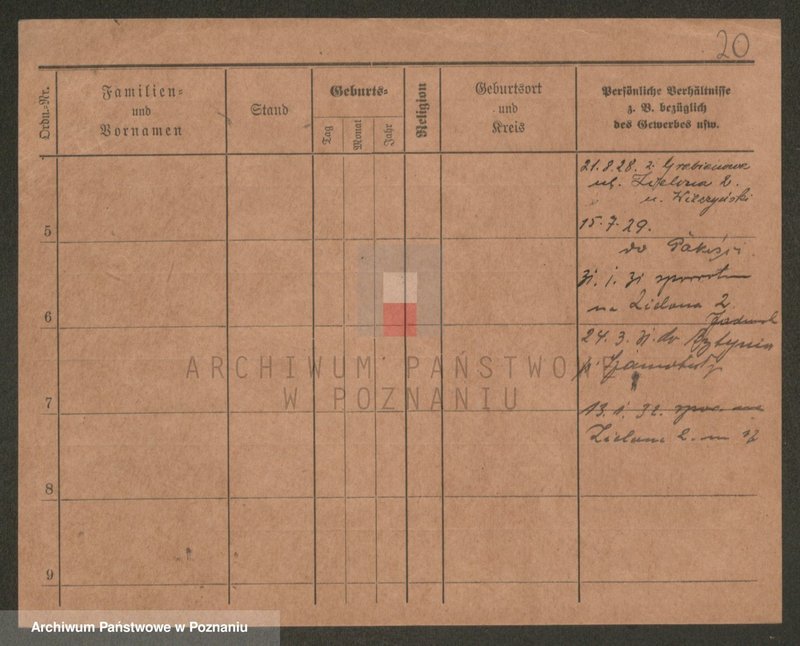 20
Ordn.-Nr.
Familien-
und
Vornamen
Stand
Geburts-
Tag
Monat
Jahr
Religion
Geburtsort
und
Kreis
Persönliche Verhältnisse
z. B. bezüglich
des Gewerbes usw.
21.8.28. z Grebienowa
ul. Zielona 2.
u. Wilczyński
5
15.7.29.
do
31.1.31
na Zielona 2.
6
24.3.31. do Bytynia
p. Szamotuły
ARCHIWUM PAŃSTWOWE
W POZNANIU
7
13.1.32.
Zielona 2. m
8
9
Archiwum Państwowe w Poznaniu